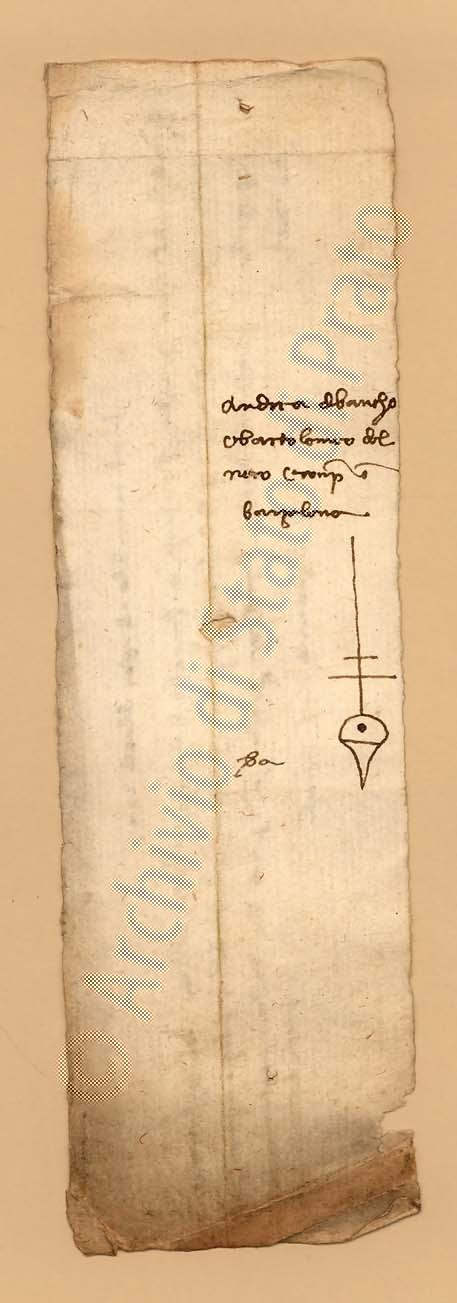 Andrea di bancho
e bartolomeo del
nero e comp
barzalona
pa
© Archivio di Stato di Prato